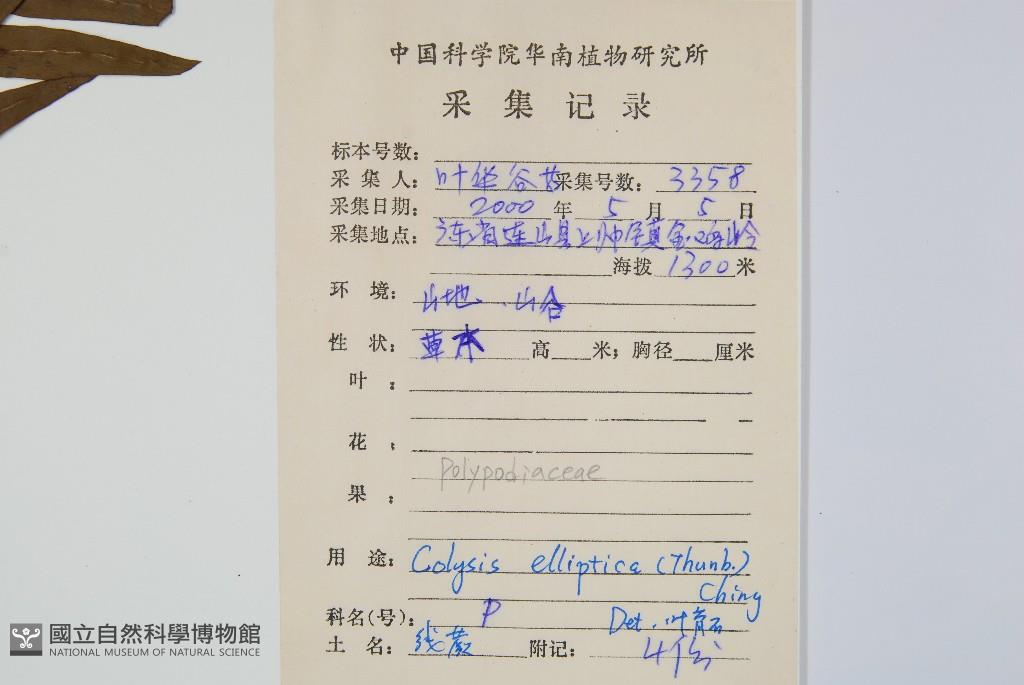 中国科学院华南植物研究所
采集记录
标本号数：
采集人：叶华谷 采集号数：3358
采集日期：2000年5月5日
采集地点：广东省连山县上帅镇金鸡岭
海拨1300米
环境：山地．山谷
性状：草本 高 米；胸径 厘米
叶：
花：
Polypodiaceae
果：
用途：Colysis elliptica (Thunb.)
Ching
科名(号)：P Det. 叶育石
土名：线蕨 附记：4份
國立自然科學博物館
NATIONAL MUSEUM OF NATURAL SCIENCE